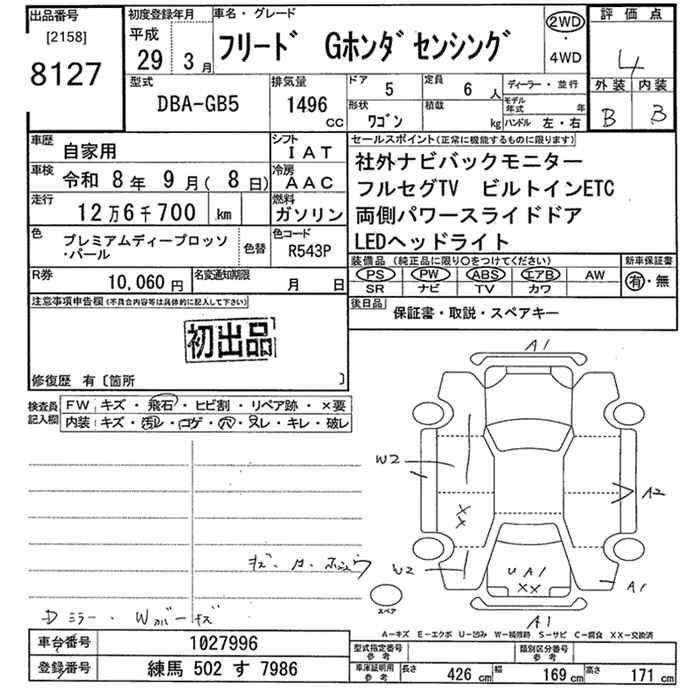 出品番号 [2158] 8127
初度登録年月 平成 29 3月
車名・グレード フリード Gホンダセンシング
2WD ・ 4WD
評価点 4
外装 B 内装 B
型式 DBA-GB5
排気量 1496 CC
ドア 5
定員 6 人
形状 ワゴン
積載 kg
ディーラー・並行
モデル年式 年
ハンドル 左・右
車歴 自家用
シフト IAT
車検 令和 8年 9月( 8日)
冷房 AAC
走行 12万6千700 km
燃料 ガソリン
色 プレミアムディープロッソ・パール
色替
色コード R543P
R券 10,060円
名変通知期限 月 日
セールスポイント(正常に機能するものに限ります)
社外ナビバックモニター
フルセグTV ビルトインETC
両側パワースライドドア
LEDヘッドライト
装備品 (純正品に限り〇をつけてください)
新車保証書
PS PW ABS エアB AW
有・無
SR ナビ TV カワ
後日品 保証書・取説・スペアキー
注意事項申告欄(不具合内容等は具体的に記入して下さい)
初出品
修復歴 有〔箇所 〕
検査員記入欄
FW キズ・飛石・ヒビ割・リペア跡・×要
内装:キズ・汚レ・コゲ・穴・スレ・キレ・破レ
A1
W2
A2
XX
W2
UA1
XX
A1
A1
スペア
Dミラー・Wカバーキズ
A―キズ E―エクボ U―凹み W―補修跡 S―サビ C―腐食 XX―交換済
車台番号 1027996
登録番号 練馬 502 す 7986
型式指定番号 参考
類別区分番号 参考
車庫証明用 参考
長さ 426 cm 幅 169 cm 高さ 171 cm